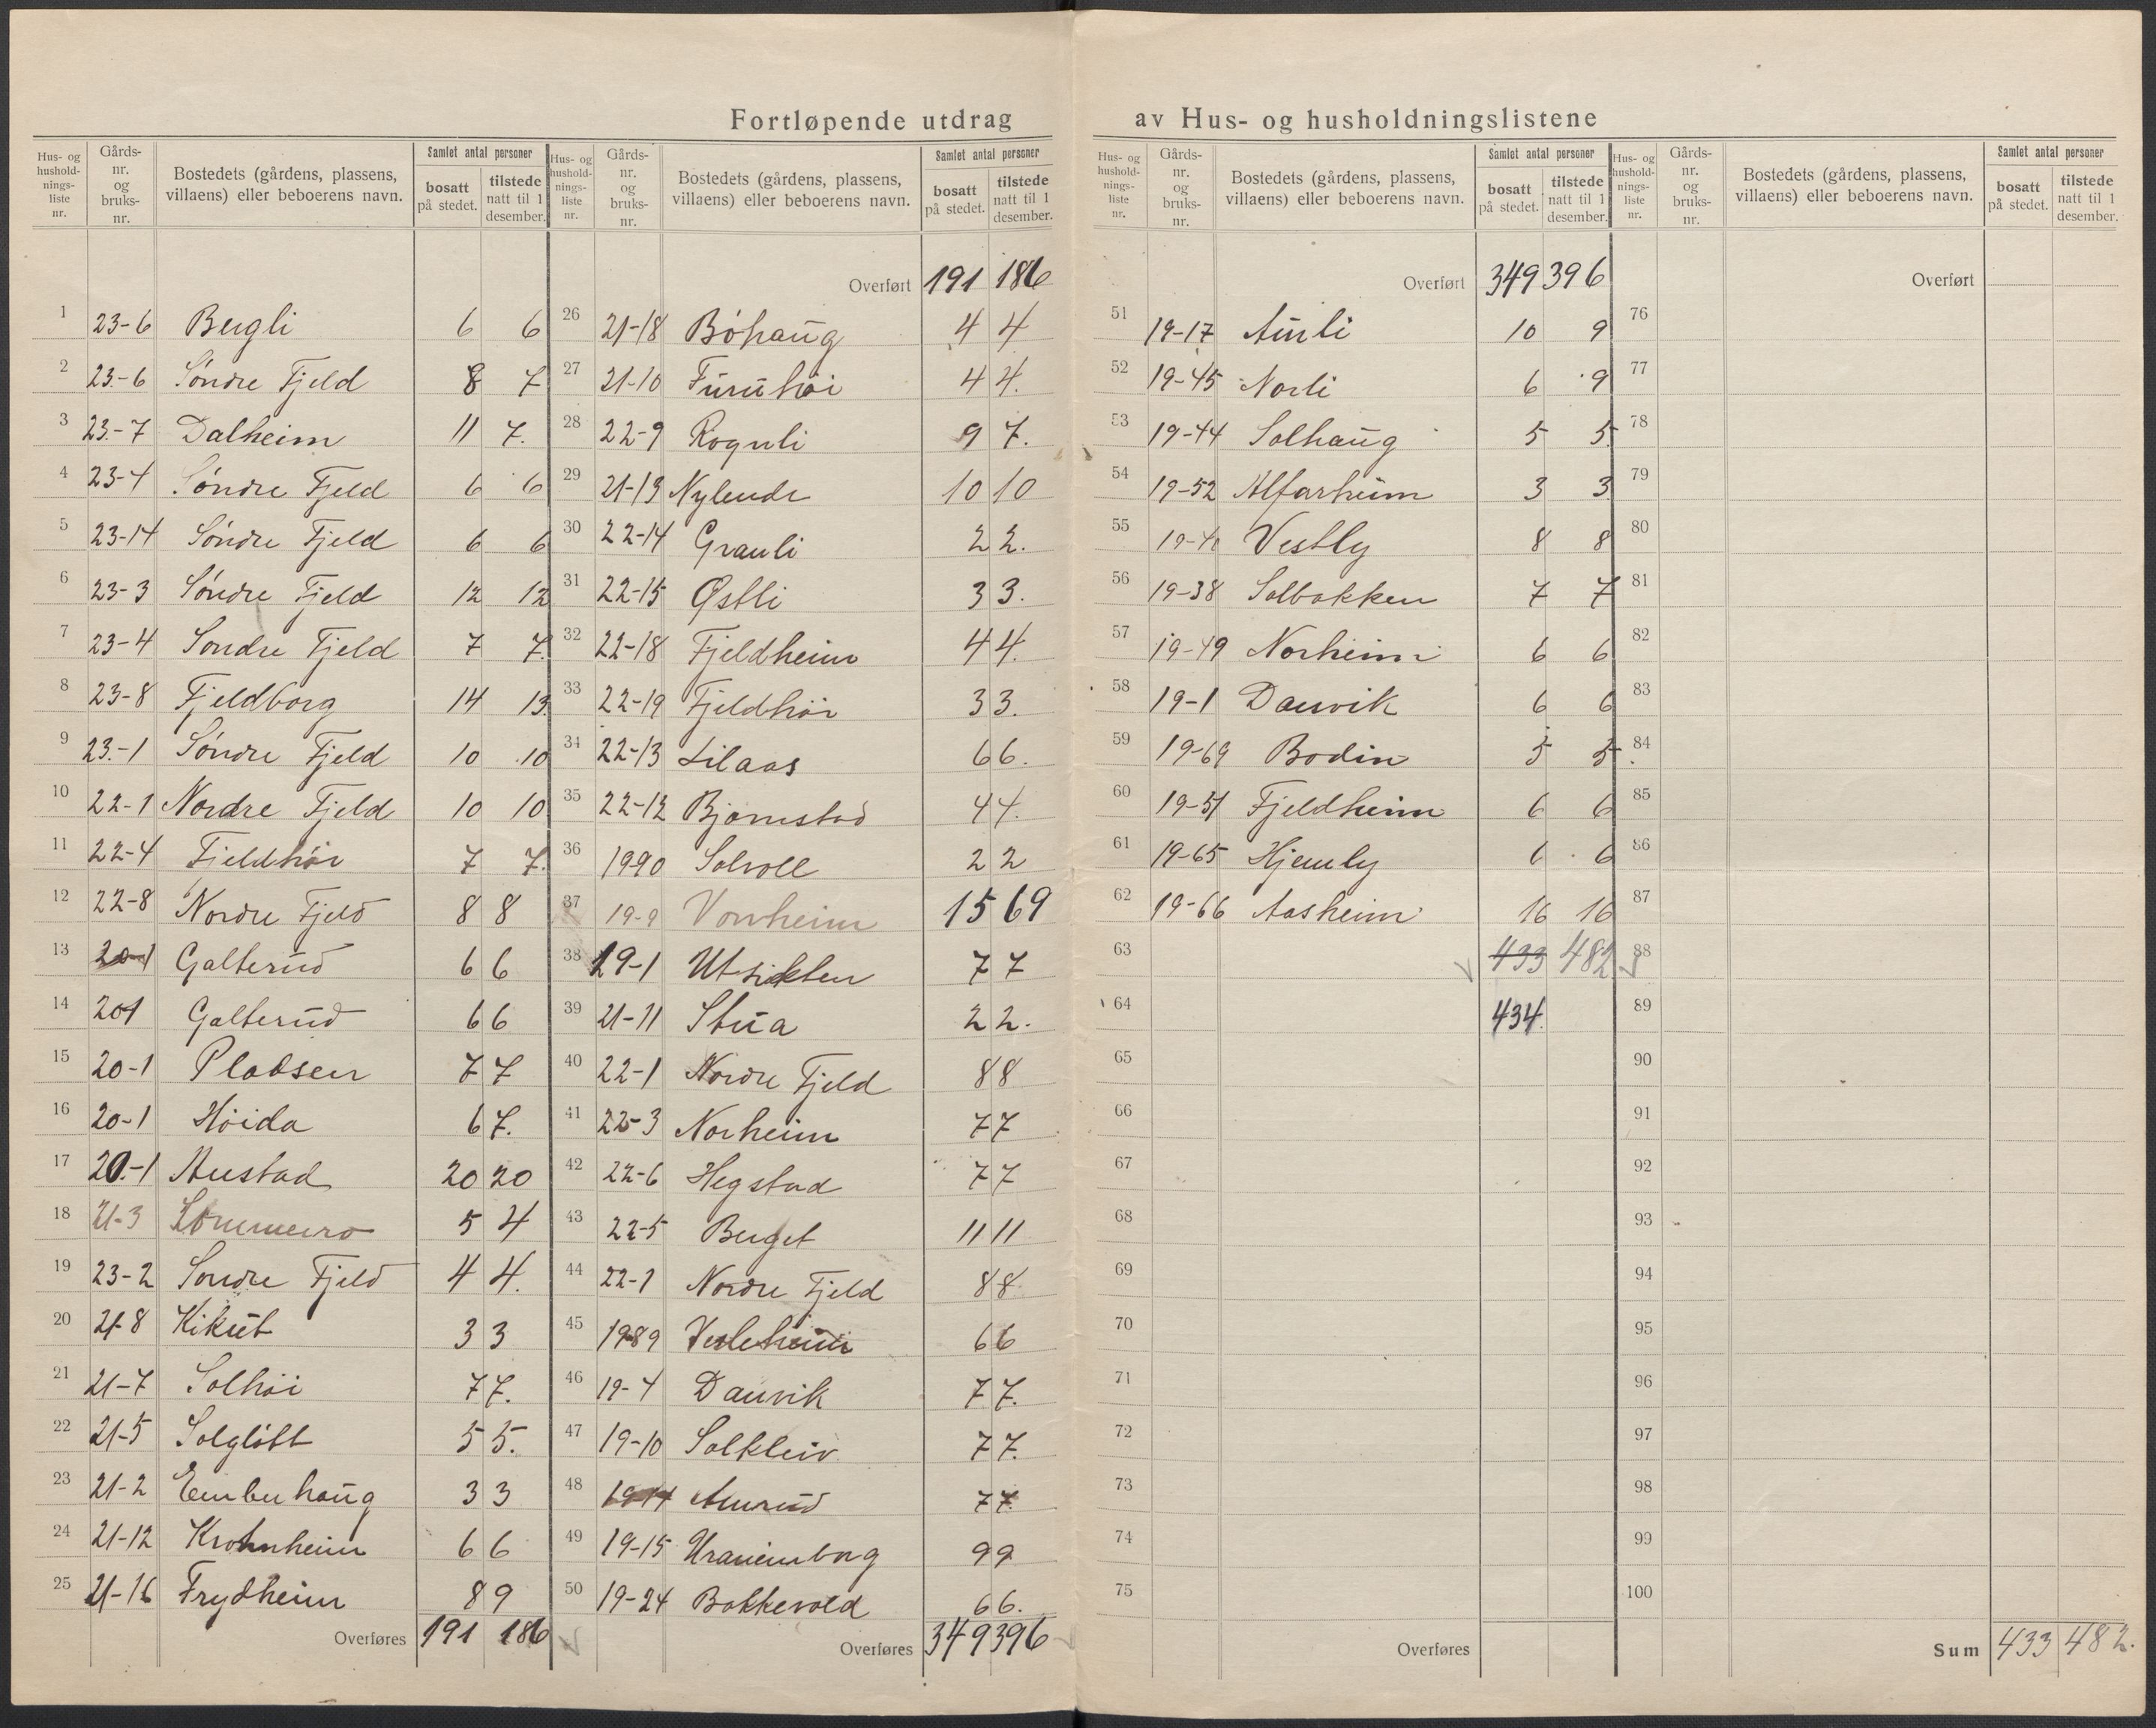 Fortløpende utdrag av Hus- og husholdningslistene
Hus- og husholdnings-liste nr. | Gårds-nr. og bruks-nr. | Bostedets (gårdens, plassens, villaens) eller beboerens navn. | Samlet antal personer | bosatt på stedet. | tilstede natt til 1 desember.
1 23-6 Bergli 6 6
2 23-6 Söndre Fjeld 8 7
3 23-7 Dalheim 11 7.
4 23-4 Söndre Fjeld 6 6
5 23-14 Söndre Fjeld 6 6
6 23-3 Söndre Fjeld 12 12
7 23-4 Sondre Fjeld 7 7.
8 23-8 Fjeldborg 14 13.
9 23-1 Söndre Fjeld 10 10
10 22-1 Nordre Fjeld 10 10
11 22-4 Fjeldhöi 7 7.
12 22-8 Nordre Fjeld 8 8
13 20-1 Galterud 6 6
14 20-1 Galterud 6 6
15 20-1 Platsen 7 7
16 20-1 Höida 6 7.
17 20-1 Austad 20 20
18 21-3 5 4
19 23-2 Sondre Fjeld 4 4.
20 21-8 Kikut 3 3
21 21-7 Solhöi 7 7.
22 21-5 Solglött 5 5.
23 21-2 3 3
24 21-12 Krohnheim 6 6
25 21-16 Frydheim 8 9
Overføres 191 186
Hus- og husholdnings-liste nr. | Gårds-nr. og bruks-nr. | Bostedets (gårdens, plassens, villaens) eller beboerens navn. | Samlet antal personer | bosatt på stedet. | tilstede natt til 1 desember.
Overført 191 186
26 21-18 Böhaug 4 4
27 21-10 Furuhöi 4 4.
28 22-9 Rognli 9 7.
29 21-19 Nylende 10 10
30 22-14 Granli 2 2.
31 22-15 Østli 3 3.
32 22-18 Fjeldheim 4 4.
33 22-19 Fjeldhöi 3 3.
34 22-13 Lilaas 6 6.
35 22-12 Bjørnstad 4 4.
36 19-90 Solvoll 2 2
37 19-9 Vonheim 15 69
38 19-1 Utsikten 7 7
39 21-11 Stua 2 2.
40 22-1 Nordre Fjeld 8 8
41 22-3 Norheim 7 7
42 22-6 Hegstad 7 7
43 22-5 Berget 11 11
44 22-1 Nordre Fjeld 8 8
45 19-89 Vesleheim 6 6
46 19-4 Danvik 7 7.
47 19-10 Solkleiv 7 7.
48 Amrud 7 7.
49 19-15 Uranienborg 9 9
50 19-24 Bakkevold 6 6.
Overføres 349 396
Hus- og husholdnings-liste nr. | Gårds-nr. og bruks-nr. | Bostedets (gårdens, plassens, villaens) eller beboerens navn. | Samlet antal personer | bosatt på stedet. | tilstede natt til 1 desember.
Overført 349 396
51 19-17 10 9
52 19-45 Norli 6 9
53 19-44 Solhaug 5 5.
54 19-52 Alfarheim 3 3
55 Vestly 8 8
56 19-38 Solbakken 7 7
57 19-49 Norheim 6 6
58 19-1 Danvik 6 6
59 19-69 Bodin 5 5
60 19-51 Fjeldheim 6 6
61 19-65 Hjemly 6 6
62 19-66 Aasheim 16 16
63 433 482
64 434.
65
66
67
68
69
70
71
72
73
74
75
Overføres
Hus- og husholdnings-liste nr. | Gårds-nr. og bruks-nr. | Bostedets (gårdens, plassens, villaens) eller beboerens navn. | Samlet antal personer | bosatt på stedet. | tilstede natt til 1 desember.
Overført
76
77
78
79
80
81
82
83
84
85
86
87
88
89
90
91
92
93
94
95
96
97
98
99
100
Sum 433 482.